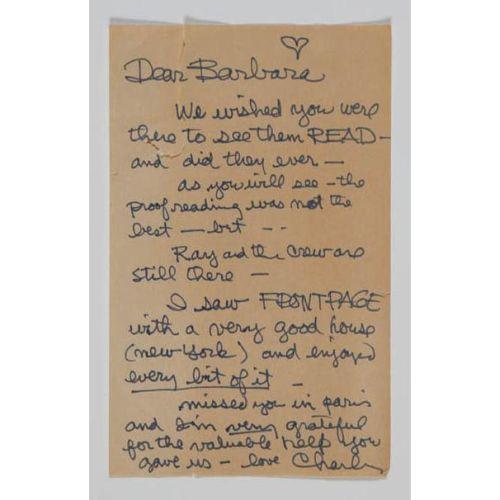 Dear Barbara
We wished you were
there to see them READ —
and did they ever —
as you will see — the
proof reading was not the
best — but - -
Ray and the crew are
still there —
I saw FRONT PAGE
with a very good house
(new York) and enjoyed
every bit of it —
missed you in paris
and I'm very grateful
for the valuable help you
gave us — love Charles